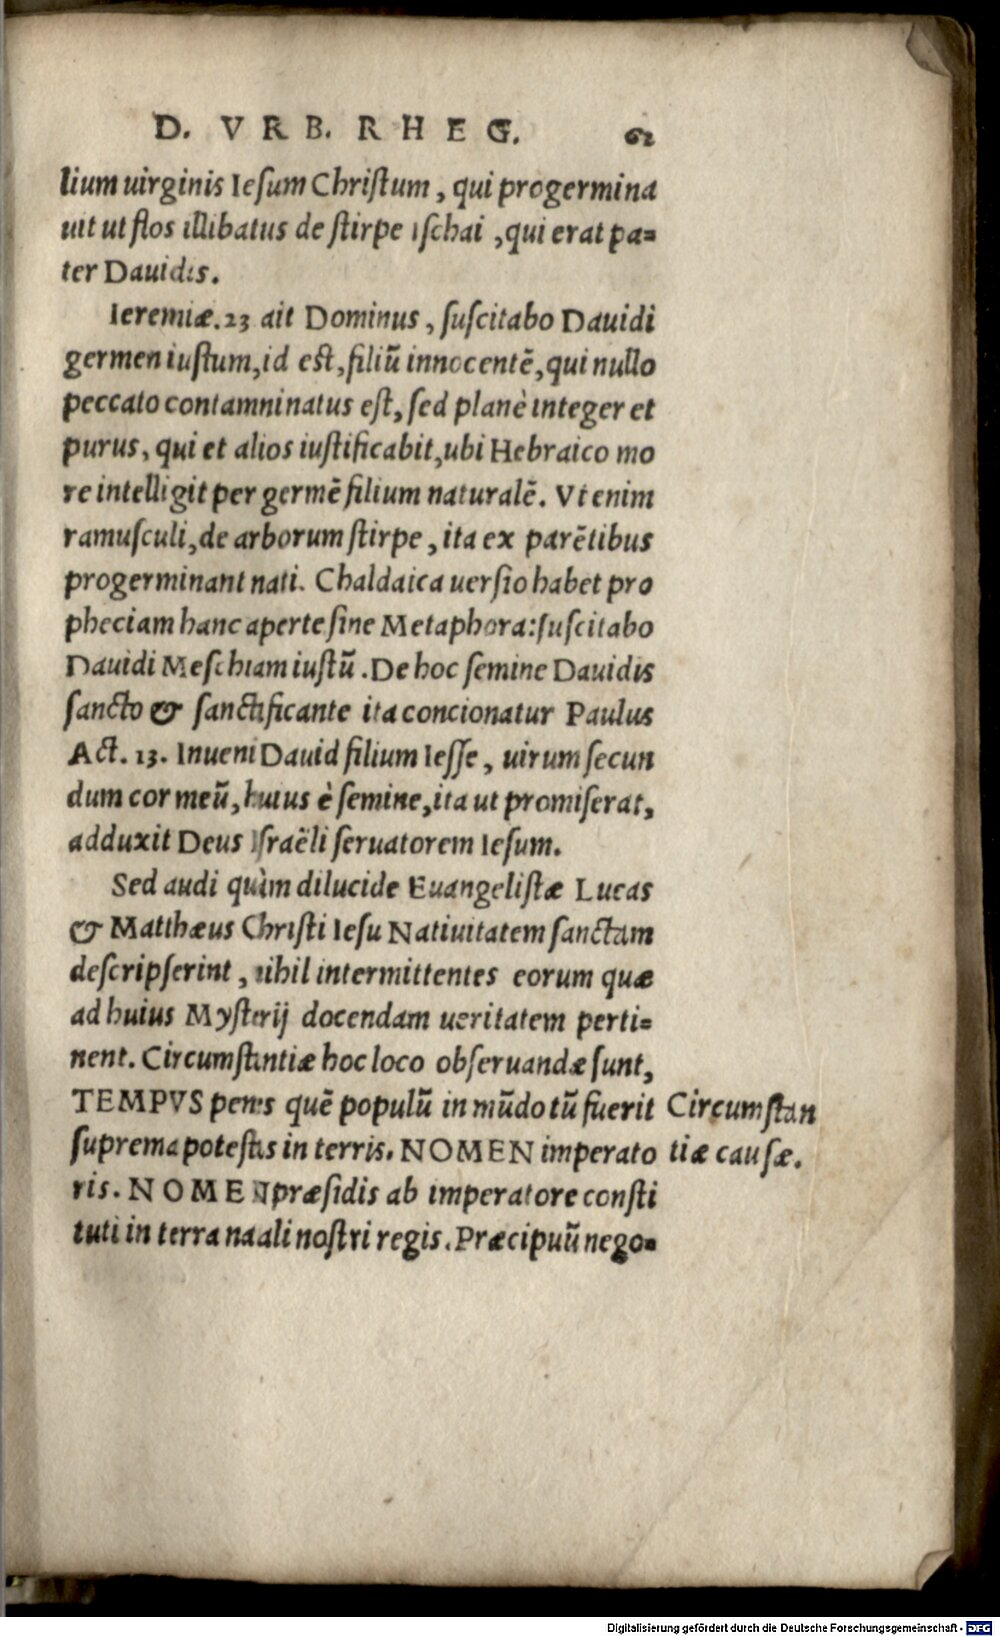 D. VRB. RHEG. 62
lium uirginis Iesum Christum, qui progermina
uit ut flos illibatus de stirpe Ischai, qui erat pa=
ter Dauidis.
Ieremiæ. 23 ait Dominus, suscitabo Dauidi
germen iustum, id est, filiū innocentē, qui nullo
peccato contamninatus est, sed planè integer et
purus, qui et alios iustificabit, ubi Hebraico mo
re intelligit per germē filium naturalē. Vt enim
ramusculi, de arborum stirpe, ita ex parētibus
progerminant nati. Chaldaica uersio habet pro
pheciam hanc aperte sine Metaphora: suscitabo
Dauidi Meschiam iustū. De hoc semine Dauidis
sancto & sanctificante ita concionatur Paulus
Act. 13. Inueni Dauid filium Iesse, uirum secun
dum cor meū, huius è semine, ita ut promiserat,
adduxit Deus Israëli seruatorem Iesum.
Sed audi quàm dilucide Euangelistæ Lucas
& Matthæus Christi Iesu Natiuitatem sanctam
descripserint, nihil intermittentes eorum quæ
ad huius Mysterij docendam ueritatem perti=
nent. Circumstantiæ hoc loco obseruandæ sunt,
TEMPVS penes quē populū in mūdo tū fuerit
suprema potestas in terris. NOMEN imperato
ris. NOMEN præsidis ab imperatore consti
tuti in terra natali nostri regis. Præcipuū nego=
Circumstan
tiæ causæ.
Digitalisierung gefördert durch die Deutsche Forschungsgemeinschaft - DFG